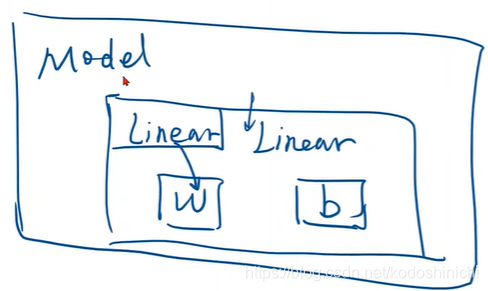 Model
Linear Linear
w b
https://blog.csdn.net/kodoshinichi